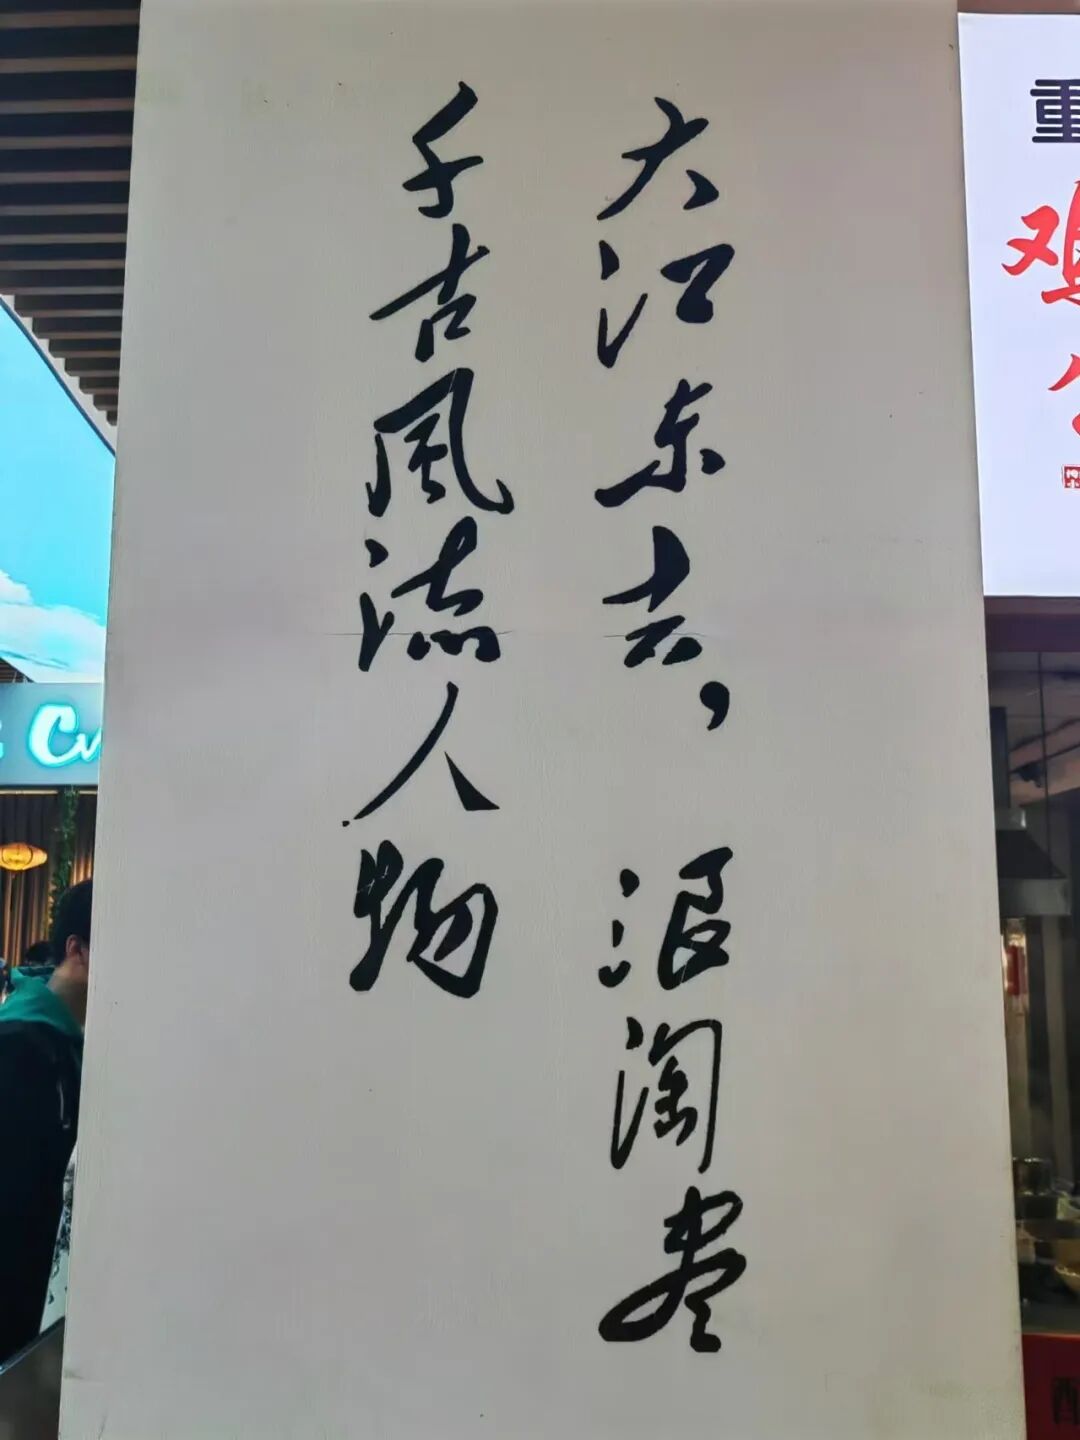 大江东去，浪淘尽
千古風流人物
重
鸡
公